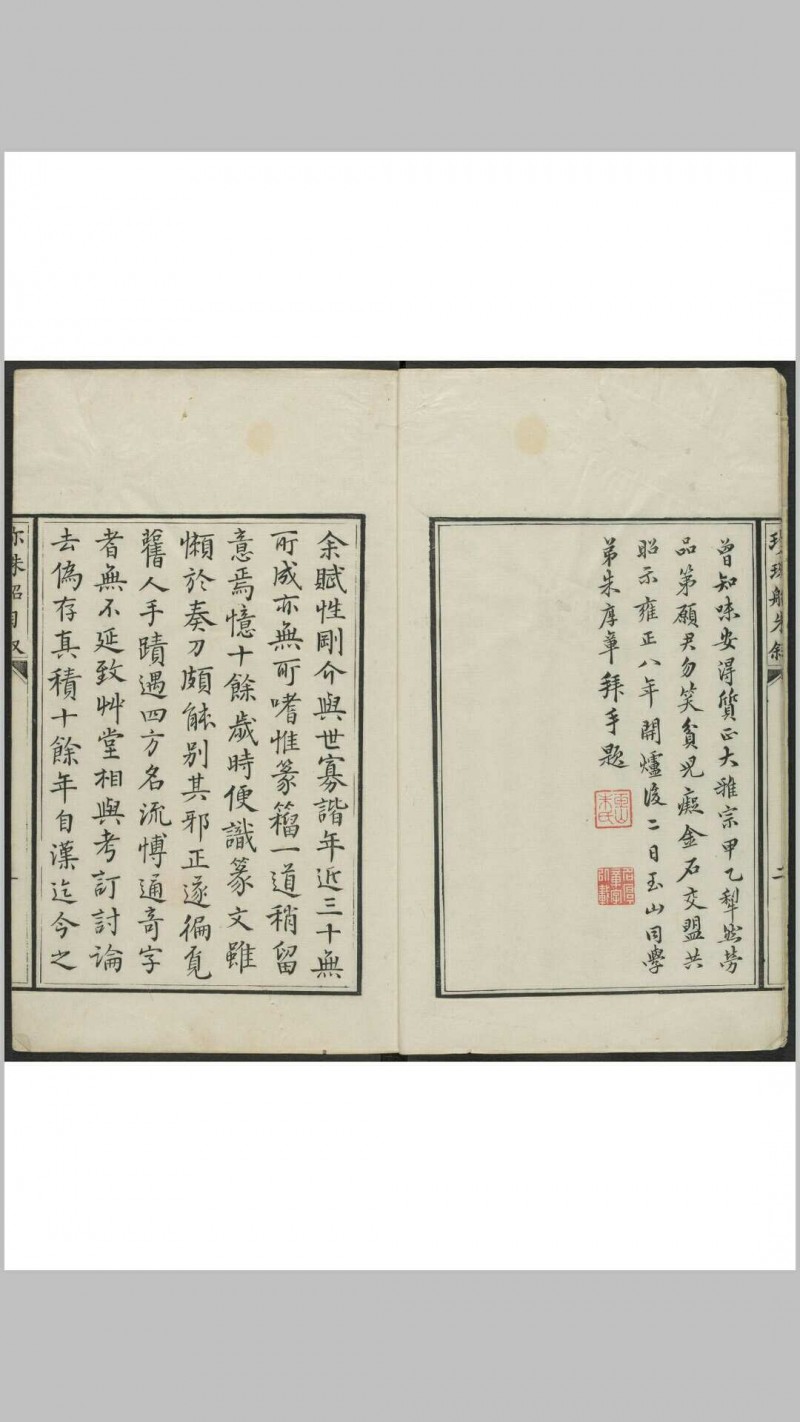 珍珠船朱敘
二
曾知味安得質正大雅宗甲乙犁然勞
品第願君勿笑貧兒癡金石交盟共
昭示雍正八年開爐後二日玉山同學
弟朱厚章拜手題
余賦性剛介與世寡諧年近三十無
所成亦無所嗜惟篆籀一道稍留
意焉憶十餘歲時便識篆文雖
懶於奏刀頗能別其邪正遂徧覓
舊人手蹟遇四方名流博通奇字
者無不延致艸堂相與考訂討論
去偽存真積十餘年自漢迄今之